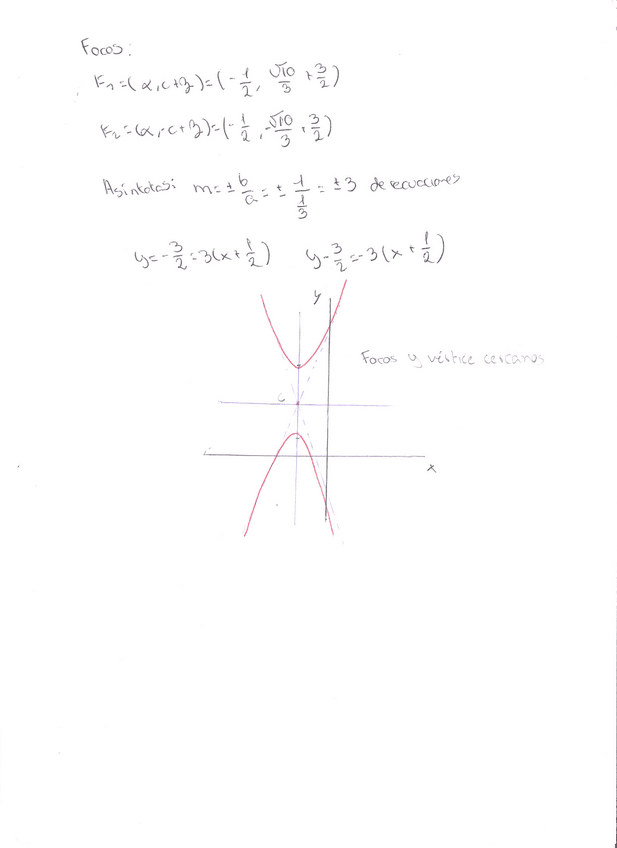 Focos:
F₁=(α, c+β)=(-1/2, √10/3 + 3/2)
F₂=(α, -c+β)=(-1/2, -√10/3 + 3/2)
Asíntotas: m=± b/a = ± 1/(1/3) = ±3 de ecuaciones
y=-3/2=3(x+1/2) y-3/2=-3(x+1/2)
y
Focos y vértice cercanos
C
x